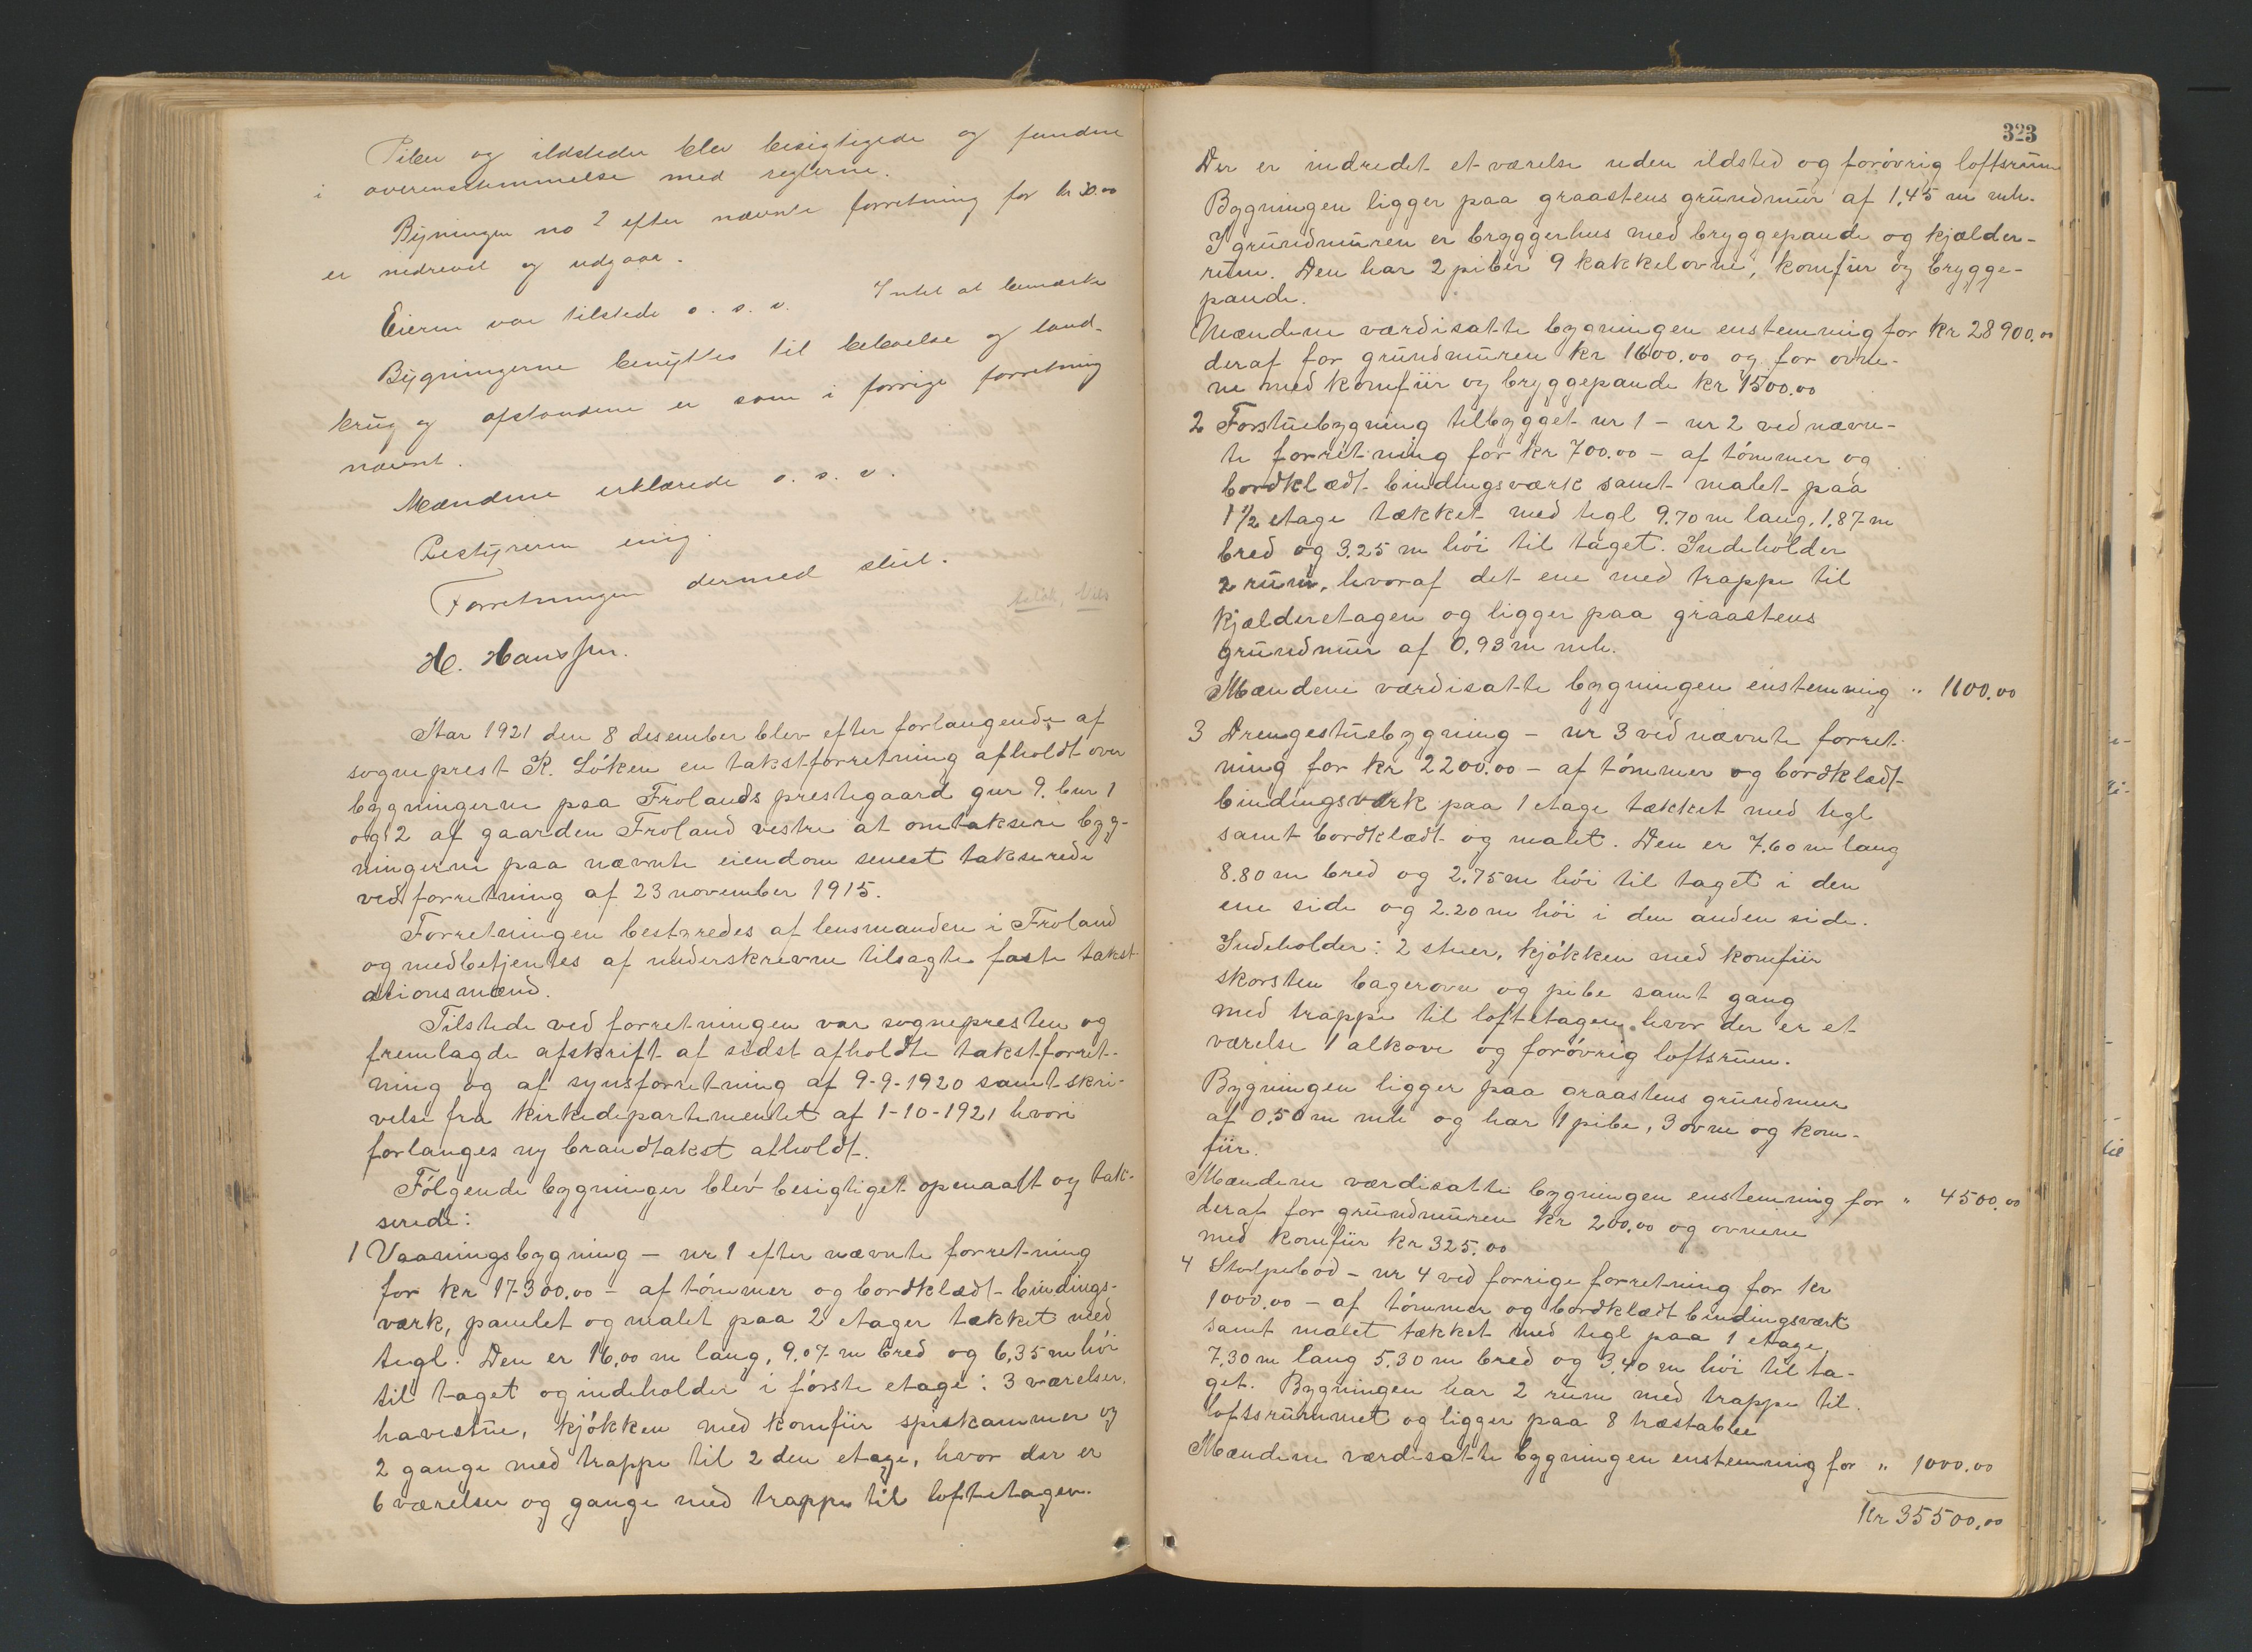 Piber og ildsteder blev besigtigede og fundne
i overensstemmelse med reglerne.
Bygningen no 2 efter nævnte forretning for kr 30.00
er nedrevet og udgaar.
Eieren var tilstede o. s. v. Intet at bemærke
Bygningerne benyttes til beboelse og land-
brug og afstandene er som i forrige forretning
nævnt.
Mændene erklærede o. s. v.
Bestyreren enig.
Forretningen dermed slut.
H. Hanssen.
Aar 1921 den 8 desember blev efter forlangende af
sogneprest K. Löken en takstforretning afholdt over
bygningerne paa Frolands prestegaard gnr 9. bnr 1
og 2 af gaarden Froland vestre at omtaksere byg-
ningerne paa nævnte eiendom senest takserede
ved forretning af 23 november 1915.
Forretningen bestyredes af lensmanden i Froland
og medbetjentes af underskrevne tilsagte faste takst-
ationsmænd.
Tilstede ved forretningen var sognepresten og
fremlagde afskrift af sidst afholdte takstforret-
ning og af synsforretning af 9-9-1920 samt skri-
velse fra Kirkedepartementet af 1-10-1921 hvori
forlanges ny brandtakst afholdt.
Fölgende bygninger blev besigtiget opmaalt og tak-
serede:
1 Vaaningsbygning - nr 1 efter nævnte forretning
for kr 17300.00 - af tömmer og bordklædt bindings-
værk, panelet og malet paa 2 etager tækket med
tegl. Den er 16,00 m lang, 9.07 m bred og 6,35 m höi
til taget og indeholder i förste etage: 3 værelser,
havestue, kjökken med komfür spiskammer og
2 gange med trappe til 2 den etage, hvor der er
6 værelser og gange med trappe til loftetagen.
323
Der er indredet et værelse uden ildsted og forövrig loftsrum
Bygningen ligger paa graastens grundmur af 1,45 m mh.
I grundmuren er bryggerhus med bryggepande og kjælder-
rum. Den har 2 piber 9 kakkelovne, komfür og brygge-
pande.
Mændene værdisatte bygningen enstemmig for kr 28900.00
deraf for grundmuren kr 1600.00 og for ovne-
ne med komfür og bryggepande kr 1500.00
2 Forstuebygning tilbygget nr 1 - nr 2 ved nævn-
te forretning for kr 700.00 - af tömmer og
bordklædt bindingsværk samt malet paa
1 1/2 etage tækket med tegl 9.70 m lang, 1.87 m
bred og 3.25 m höi til taget. Indeholder
2 rum, hvoraf det ene med trappe til
kjælderetagen og ligger paa graastens
grundmur af 0,93 m mh.
Mændene værdisatte bygningen enstemmig " 1100.00
3 Drengestuebygning - nr 3 ved nævnte forret-
ning for kr 2200.00 - af tömmer og bordklædt
bindingsværk paa 1 etage tækket med tegl
samt bordklædt og malet. Den er 7.60 m lang
8.80 m bred og 2.75 m höi til taget i den
ene side og 2.20 m höi i den anden side.
Indeholder: 2 stuer, kjökken med komfür
skorsten bagerovn og pibe samt gang
med trappe til loftetagen hvor der er et
værelse 1 alkove og forövrig loftsrum.
Bygningen ligger paa graastens grundmur
af 0,50 m mh og har 1 pibe, 3 ovne og kom-
für.
Mændene værdisatte bygningen enstemmig for " 4500.00
deraf for grundmuren kr 200.00 og ovnene
med komfür kr 325.00
4 Stolpebod - nr 4 ved forrige forretning for kr
1000.00 - af tömmer og bordklædt bindingsværk
samt malet tækket med tegl paa 1 etage
7,30 m lang 5.30 m bred og 3,40 m höi til ta-
get. Bygningen har 2 rum med trappe til
loftsrummet og ligger paa 8 træstabber
Mændene værdisatte bygningen enstemmig for " 1000.00
Kr 35500.00